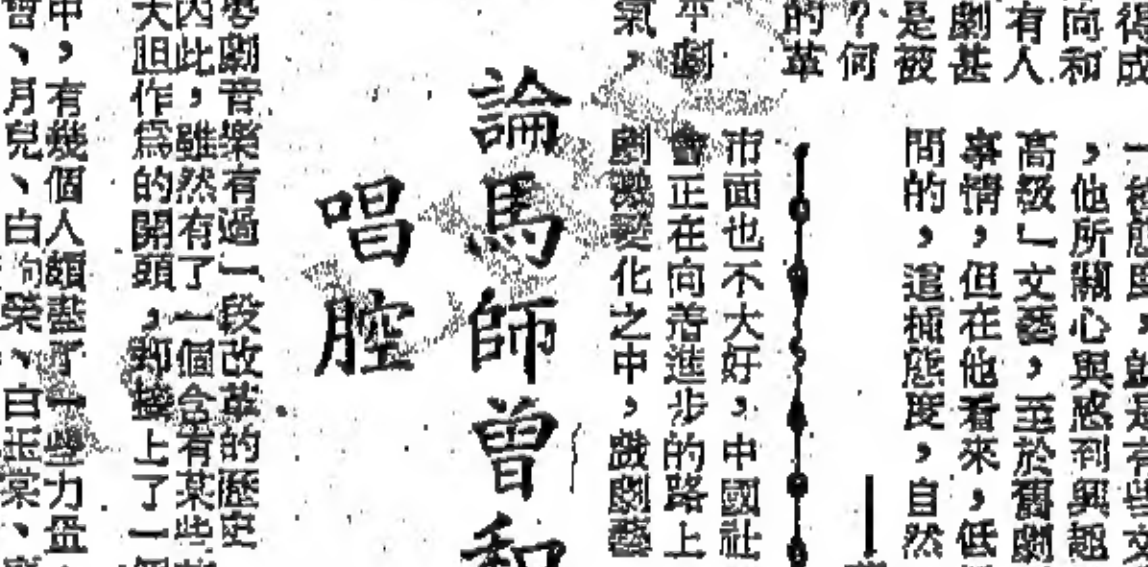 得成
向和
有人
劇甚
是被
？何
的革
平劇
氣，
一種態度，就是有些文
，他所關心與感到興趣
高級」文藝，至於舊劇
事情，但在他看來，低
問的，這種態度，自然
市面也不大好，中國社
會正在向着進步的路上
劇變化之中，戲劇藝
論馬師曾和
唱腔
粵劇音樂有過一段改革的歷史
因此，雖然有了一個含有某些
大胆作爲的開頭，却接上了一個
中，有幾個人頗盡了一些力量
曾、月兒、白駒榮、白玉棠、